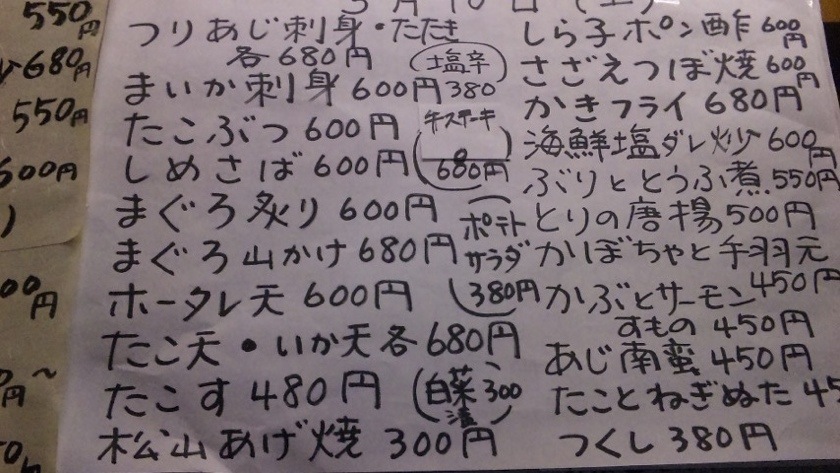 550円
680円
550円
600円
)
00円
円〜
3月10日(土)
つりあじ刺身・たたき
各680円
まいか刺身 600円
たこぶつ 600円
しめさば 600円
まぐろ炙り 600円
まぐろ山かけ 680円
ホータレ天 600円
たこ天・いか天各 680円
たこす 480円
松山あげ焼 300円
塩辛
380
牛ステーキ
680円
ポテト
サラダ
380円
白菜 300
漬
しら子ポン酢 600円
さざえつぼ焼 600円
かきフライ 680円
海鮮塩ダレ炒 600円
ぶりととうふ煮 550円
とりの唐揚 500円
かぼちゃと手羽元
450円
かぶとサーモン
すもの 450円
あじ南蛮 450円
たことねぎぬた 45
つくし 380円